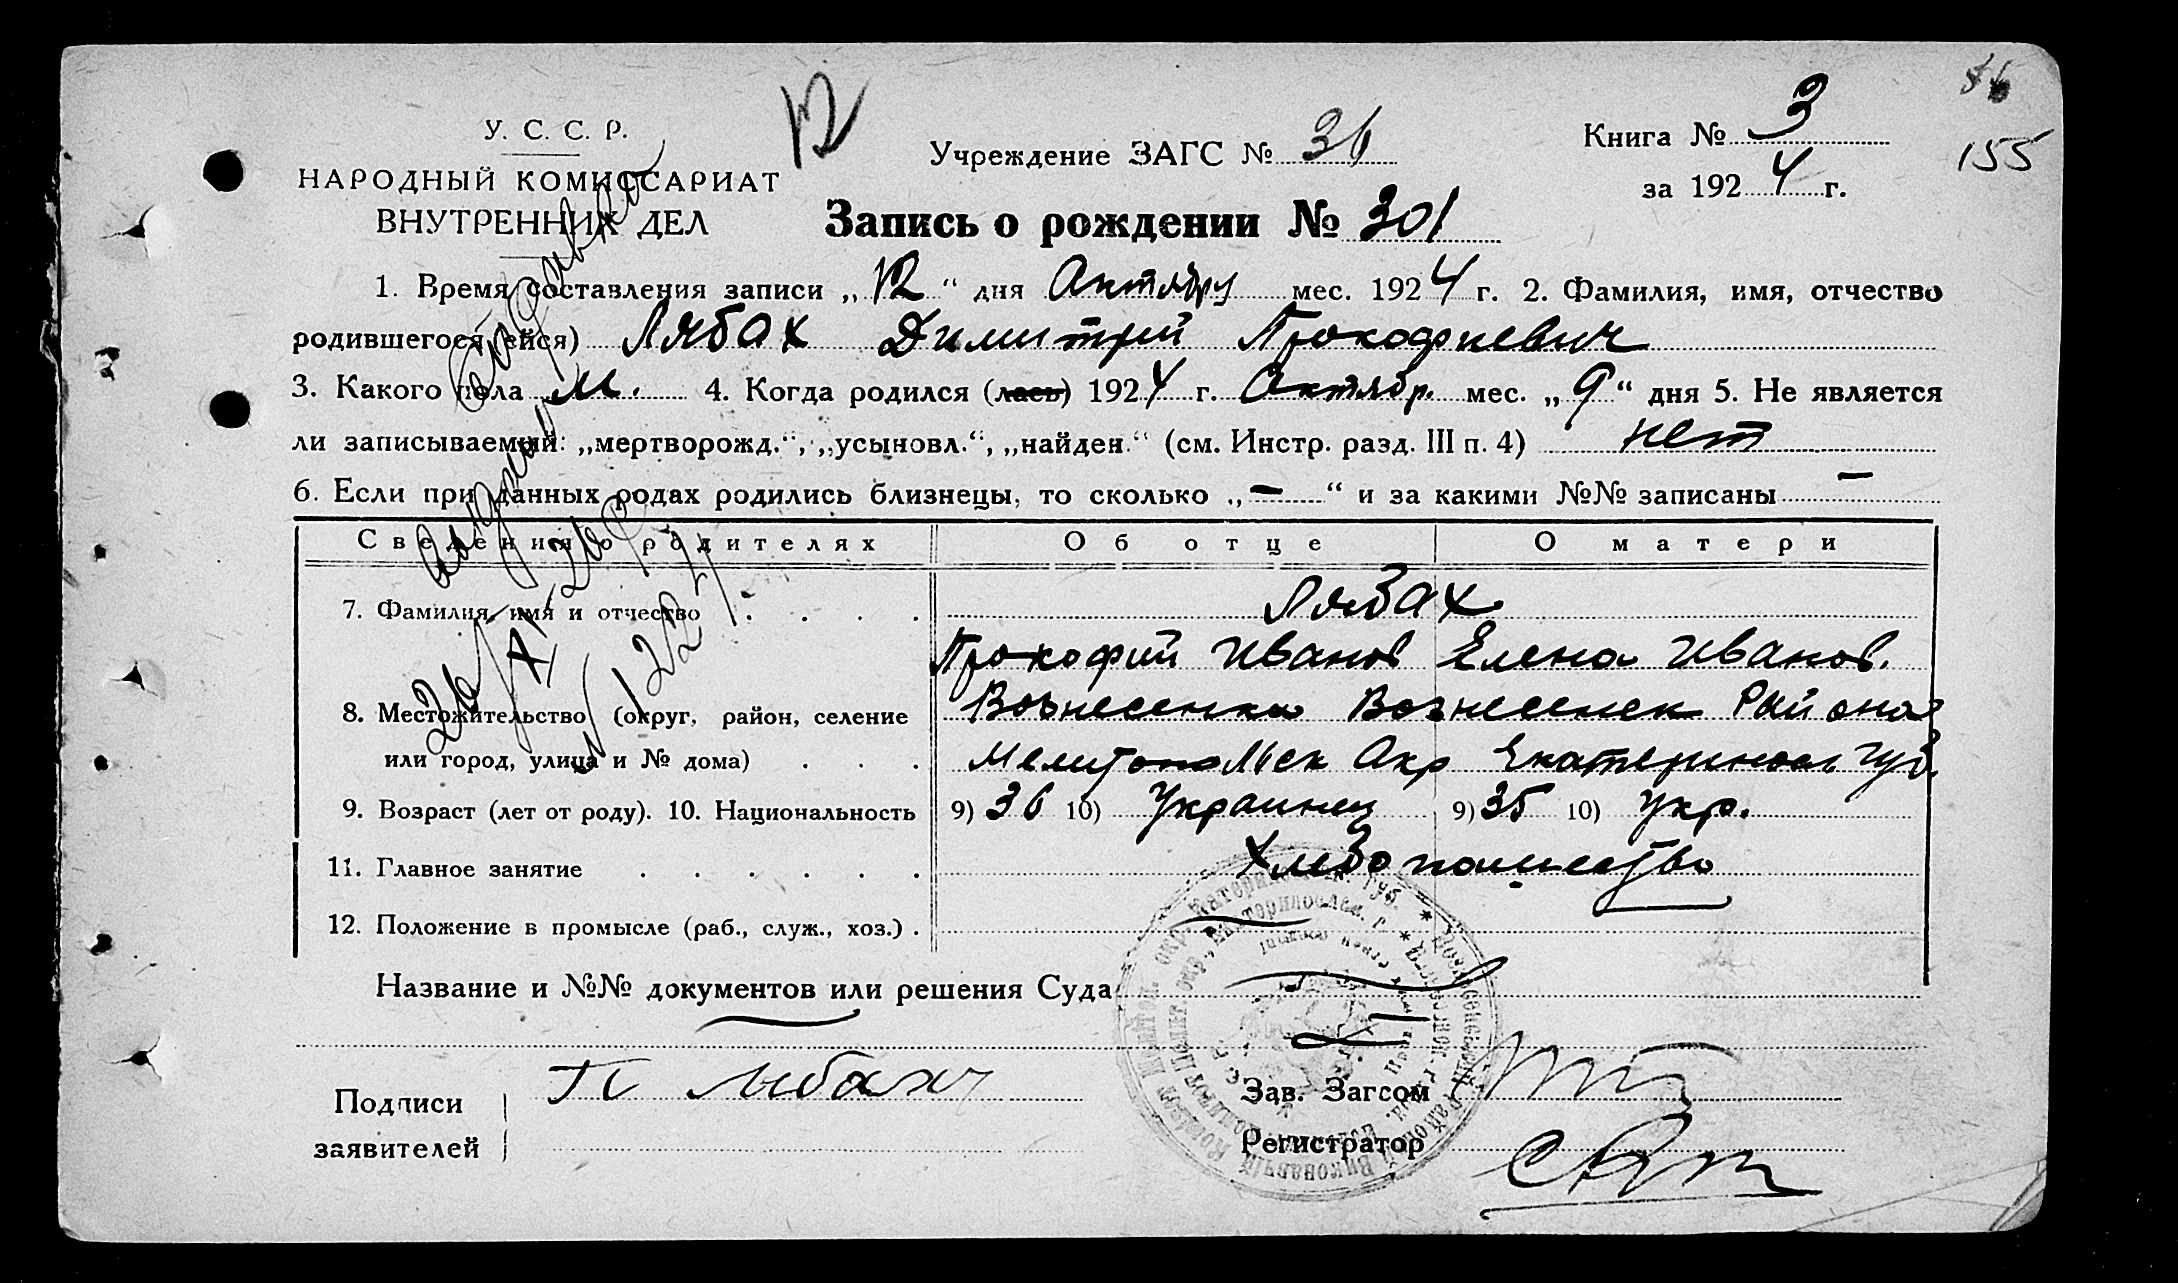 56
155
У. С. С. Р.
НАРОДНЫЙ КОМИССАРИАТ
ВНУТРЕННИХ ДЕЛ
12
Учреждение ЗАГС № 36
Книга № 3
за 1924 г.
Запись о рождении № 301
1. Время составления записи „12“ дня Октября мес. 1924 г. 2. Фамилия, имя, отчество
родившегося (ейся) Лябах Димитрий Прокофиевич
3. Какого пола м. 4. Когда родился (лась) 1924 г. Октябр. мес. „9“ дня 5. Не является
ли записываемый: „мертворожд.“, „усыновл.“, „найден.“ (см. Инстр. разд. III п. 4) нет
6. Если при данных родах родились близнецы, то сколько „—“ и за какими №№ записаны —
Сведения о родителях Об отце О матери
7. Фамилия, имя и отчество . . . . Лябах
Прокофий Иванов Елена Иванов.
8. Местожительство (округ, район, селение Вознесенка Вознесенск Района
или город, улица и № дома) . . . Мелитопольск Окр Екатеринослав губ.
9. Возраст (лет от роду). 10. Национальность 9) 36 10) Украинец 9) 35 10) Укр.
11. Главное занятие . . . . . . Хлебопашество
12. Положение в промысле (раб., служ., хоз.) .
Название и №№ документов или решения Суда
Подписи
заявителей
П Лябах
Зав. Загсом
Регистратор
Выдана справка
26/XI 26 р
№ 1227